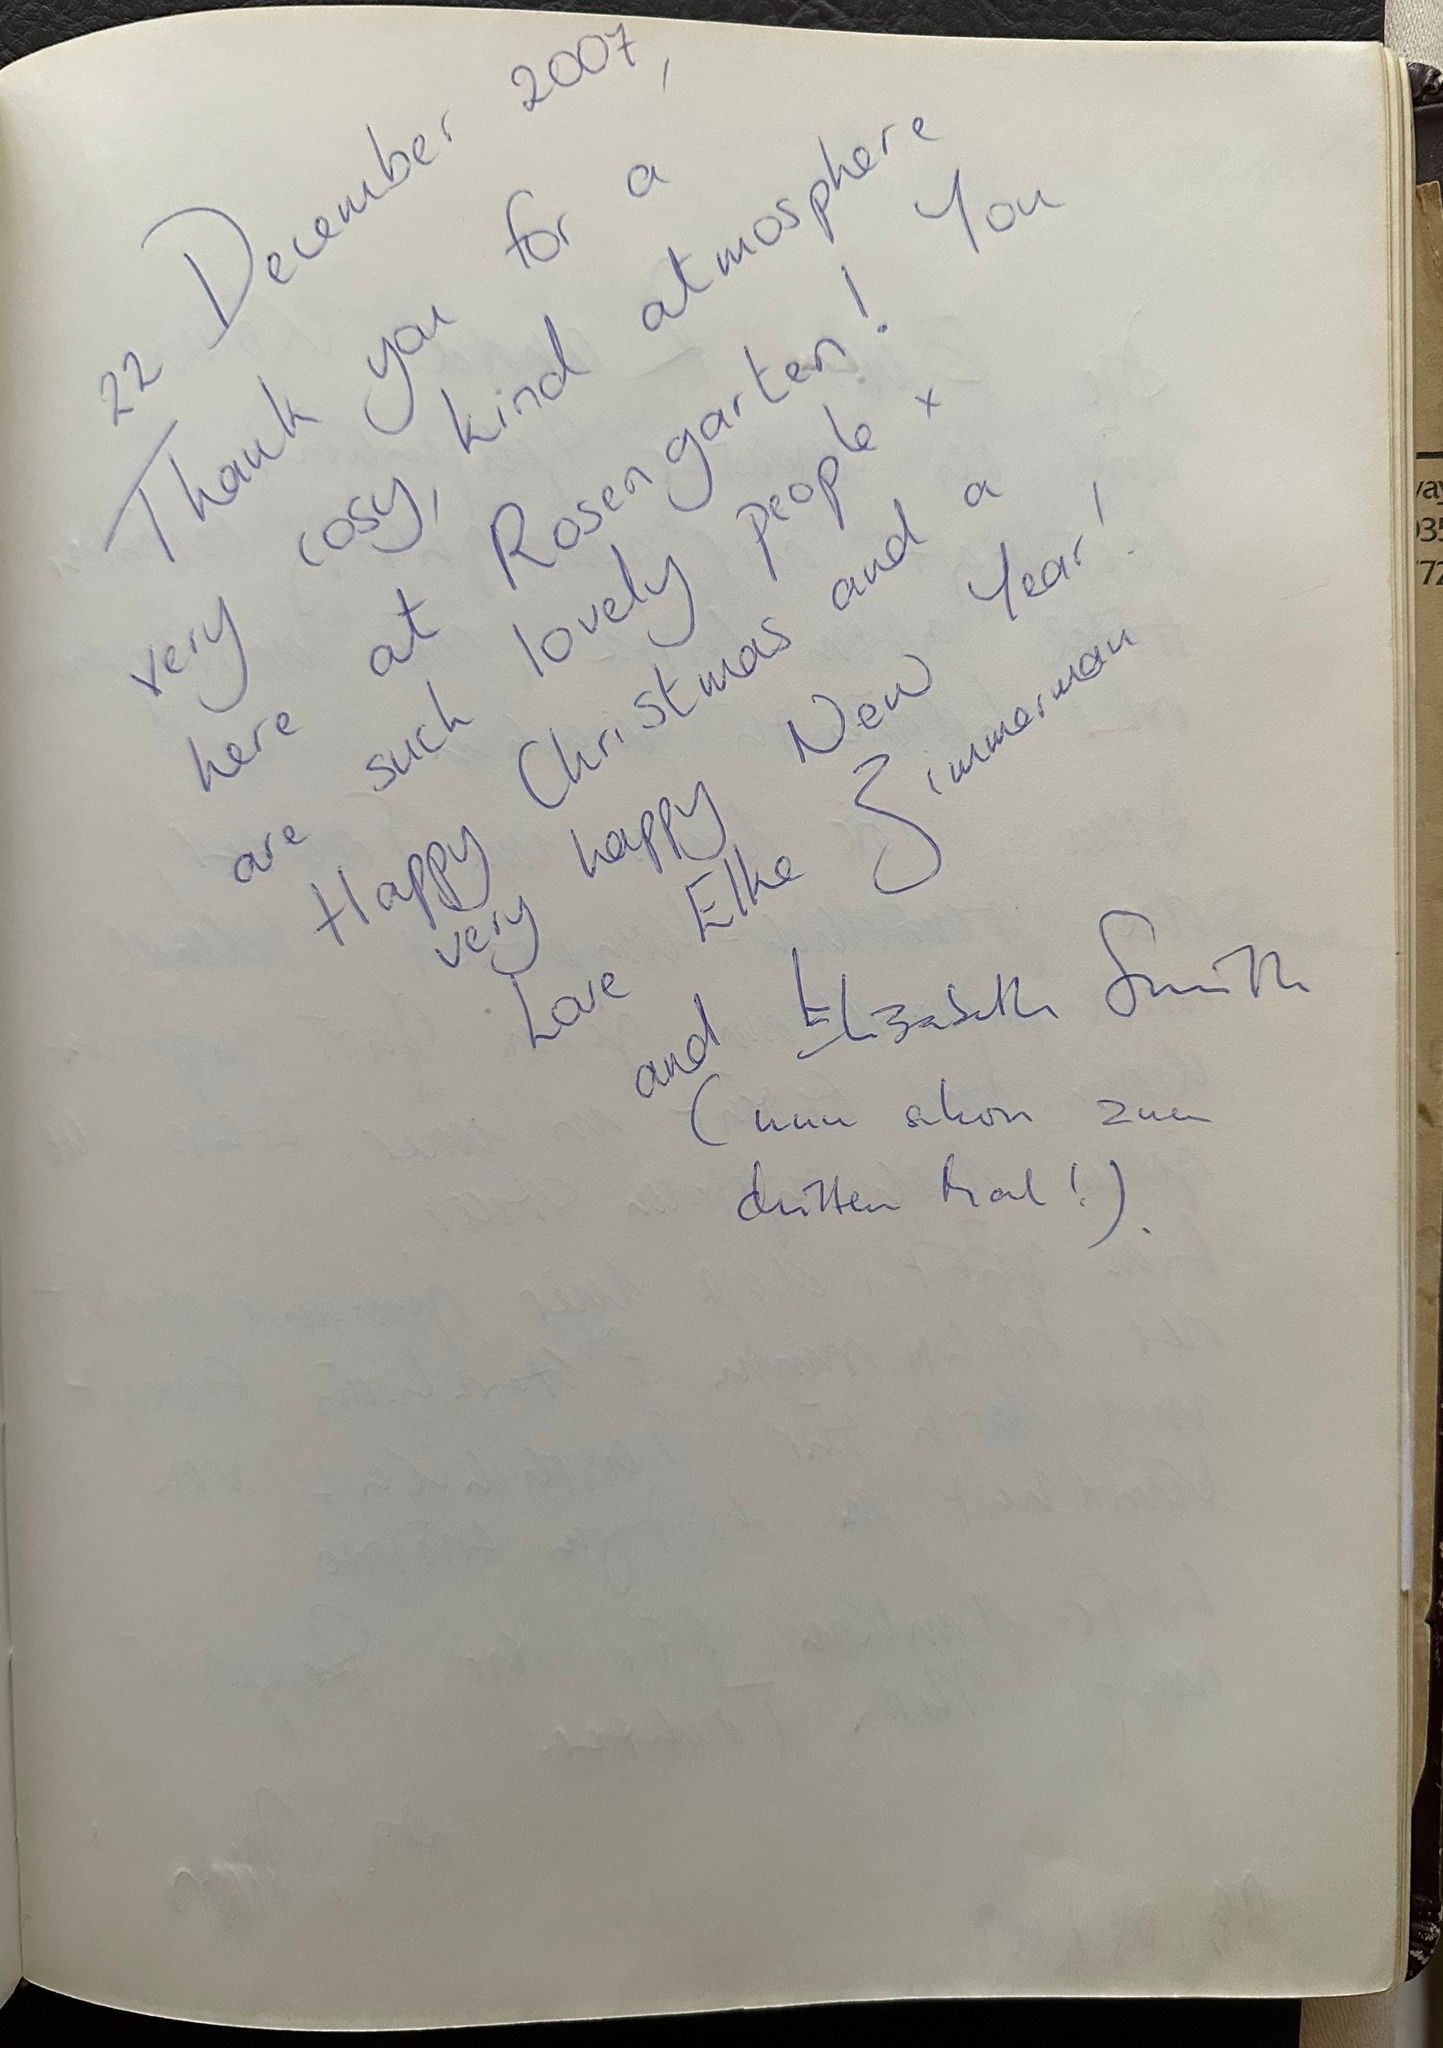 22 December 2007,
Thank you for a
very cosy, kind atmosphere
here at Rosengarten! You
are such lovely people x
Happy Christmas and a
very happy New Year!
Love Elke Zimmerman
and Elizabeth Smith
(nun schon zum
dritten Mal!).